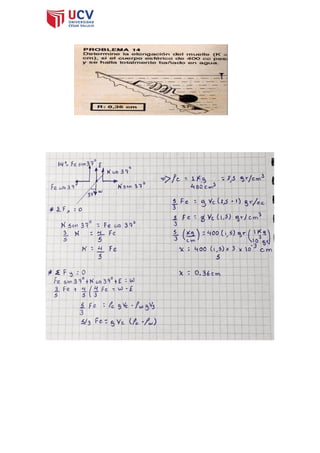 UCV
UNIVERSIDAD
CÉSAR VALLEJO
PROBLEMA 14
Determine la elongación del muelle (K =
cm), si el cuerpo esférico de 400 cc pes
y se halla totalmente bañado en agua.
R: 0,36 cm.
14º. Fe sin37º E
N cos 37º
Fe cos37º
N sin 37º
37º w
# Σ Fx = 0
N sin 37º = Fe cos 37º
3/5 N = 4/5 Fe
N = 4/3 Fe
# Σ Fy = 0
Fe sin 37º + N cos 37º + E = w
3/5 Fe + 4/5 (4/3 Fe = w - E
5/3 Fe = ρc g Vc - ρw g Vs
5/3 Fe = g Vc (ρc - ρw)
1 Kg
400 cm³
= 2,5 gr/cm³
5/3 Fe = g Vc (2,5 - 1) gr/cc
5/3 Fe = g Vc (1,5) gr/cm³
x = 0.36cm